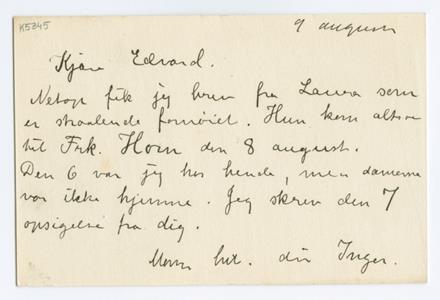 K5245
9 august
Kjære Edvard.
Netop fik jeg brev fra Laura som
er straalende fornøiet. Hun kom altsaa
til Frk. Horn den 8 august.
Den 6 var jeg hos hende, men damerne
var ikke hjemme. Jeg skrev den 7
opsigelse fra dig.
din Inger.